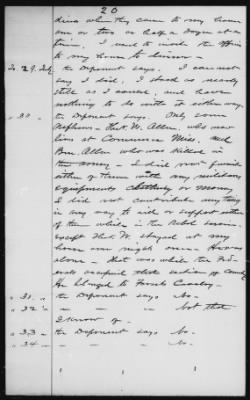 20
dine when they came to my house
one or two or half a dozen at a
time. I used to invite the officers
to my house to dinner -
To 29. Inty the Deponent says. I can not
say I did, I stood as nearly
still as I could, and have
nothing to do with it either way.
" 30 . the Deponent says. Only some
Nephews - W. Allen, who now
lives at Commerce Miss. and
Ben. Allen who was killed in
the army - I did not furnish
either of them with any military
equipments clothing or money
I did not contribute any thing
in any way to aid or support either
of them while in the Rebel service.
except that W. stayed at my
house one night once - He was
alone - that was while the Fed-
erals occupied that section of country
He belonged to Cavalry -
" 31. " the Deponent says No -
" 32 " - - - - Not that
I know of -
" 33 - the Deponent says No -
" 34 - - - - - No -